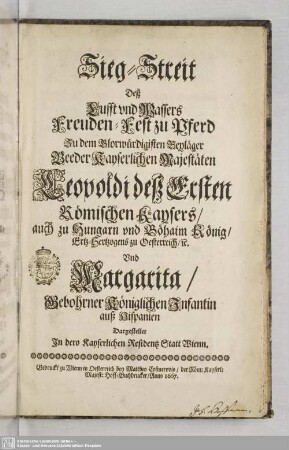 Sieg-Streit
Deß
Lufft vnd Wassers
Freuden-Fest zu Pferd
Zu dem Glorwürdigisten Beyläger
Beeder Kayserlichen Majestäten
Leopoldi deß Ersten
Römischen Kaysers/
auch zu Hungarn vnd Böhaim König/
Ertz-Hertzogens zu Oesterreich/ ⁊c.
Vnd
Margarita/
Gebohrner Königlichen Infantin
auß Hispanien
Dargestellet
In dero Kayserlichen Residentz Statt Wienn.
Gedruckt zu Wienn in Oesterreich bey Mattheo Cosmerovio/ der Röm: Kayserl:
Mayest: Hoff-Buchdrucker/ Anno 1667.